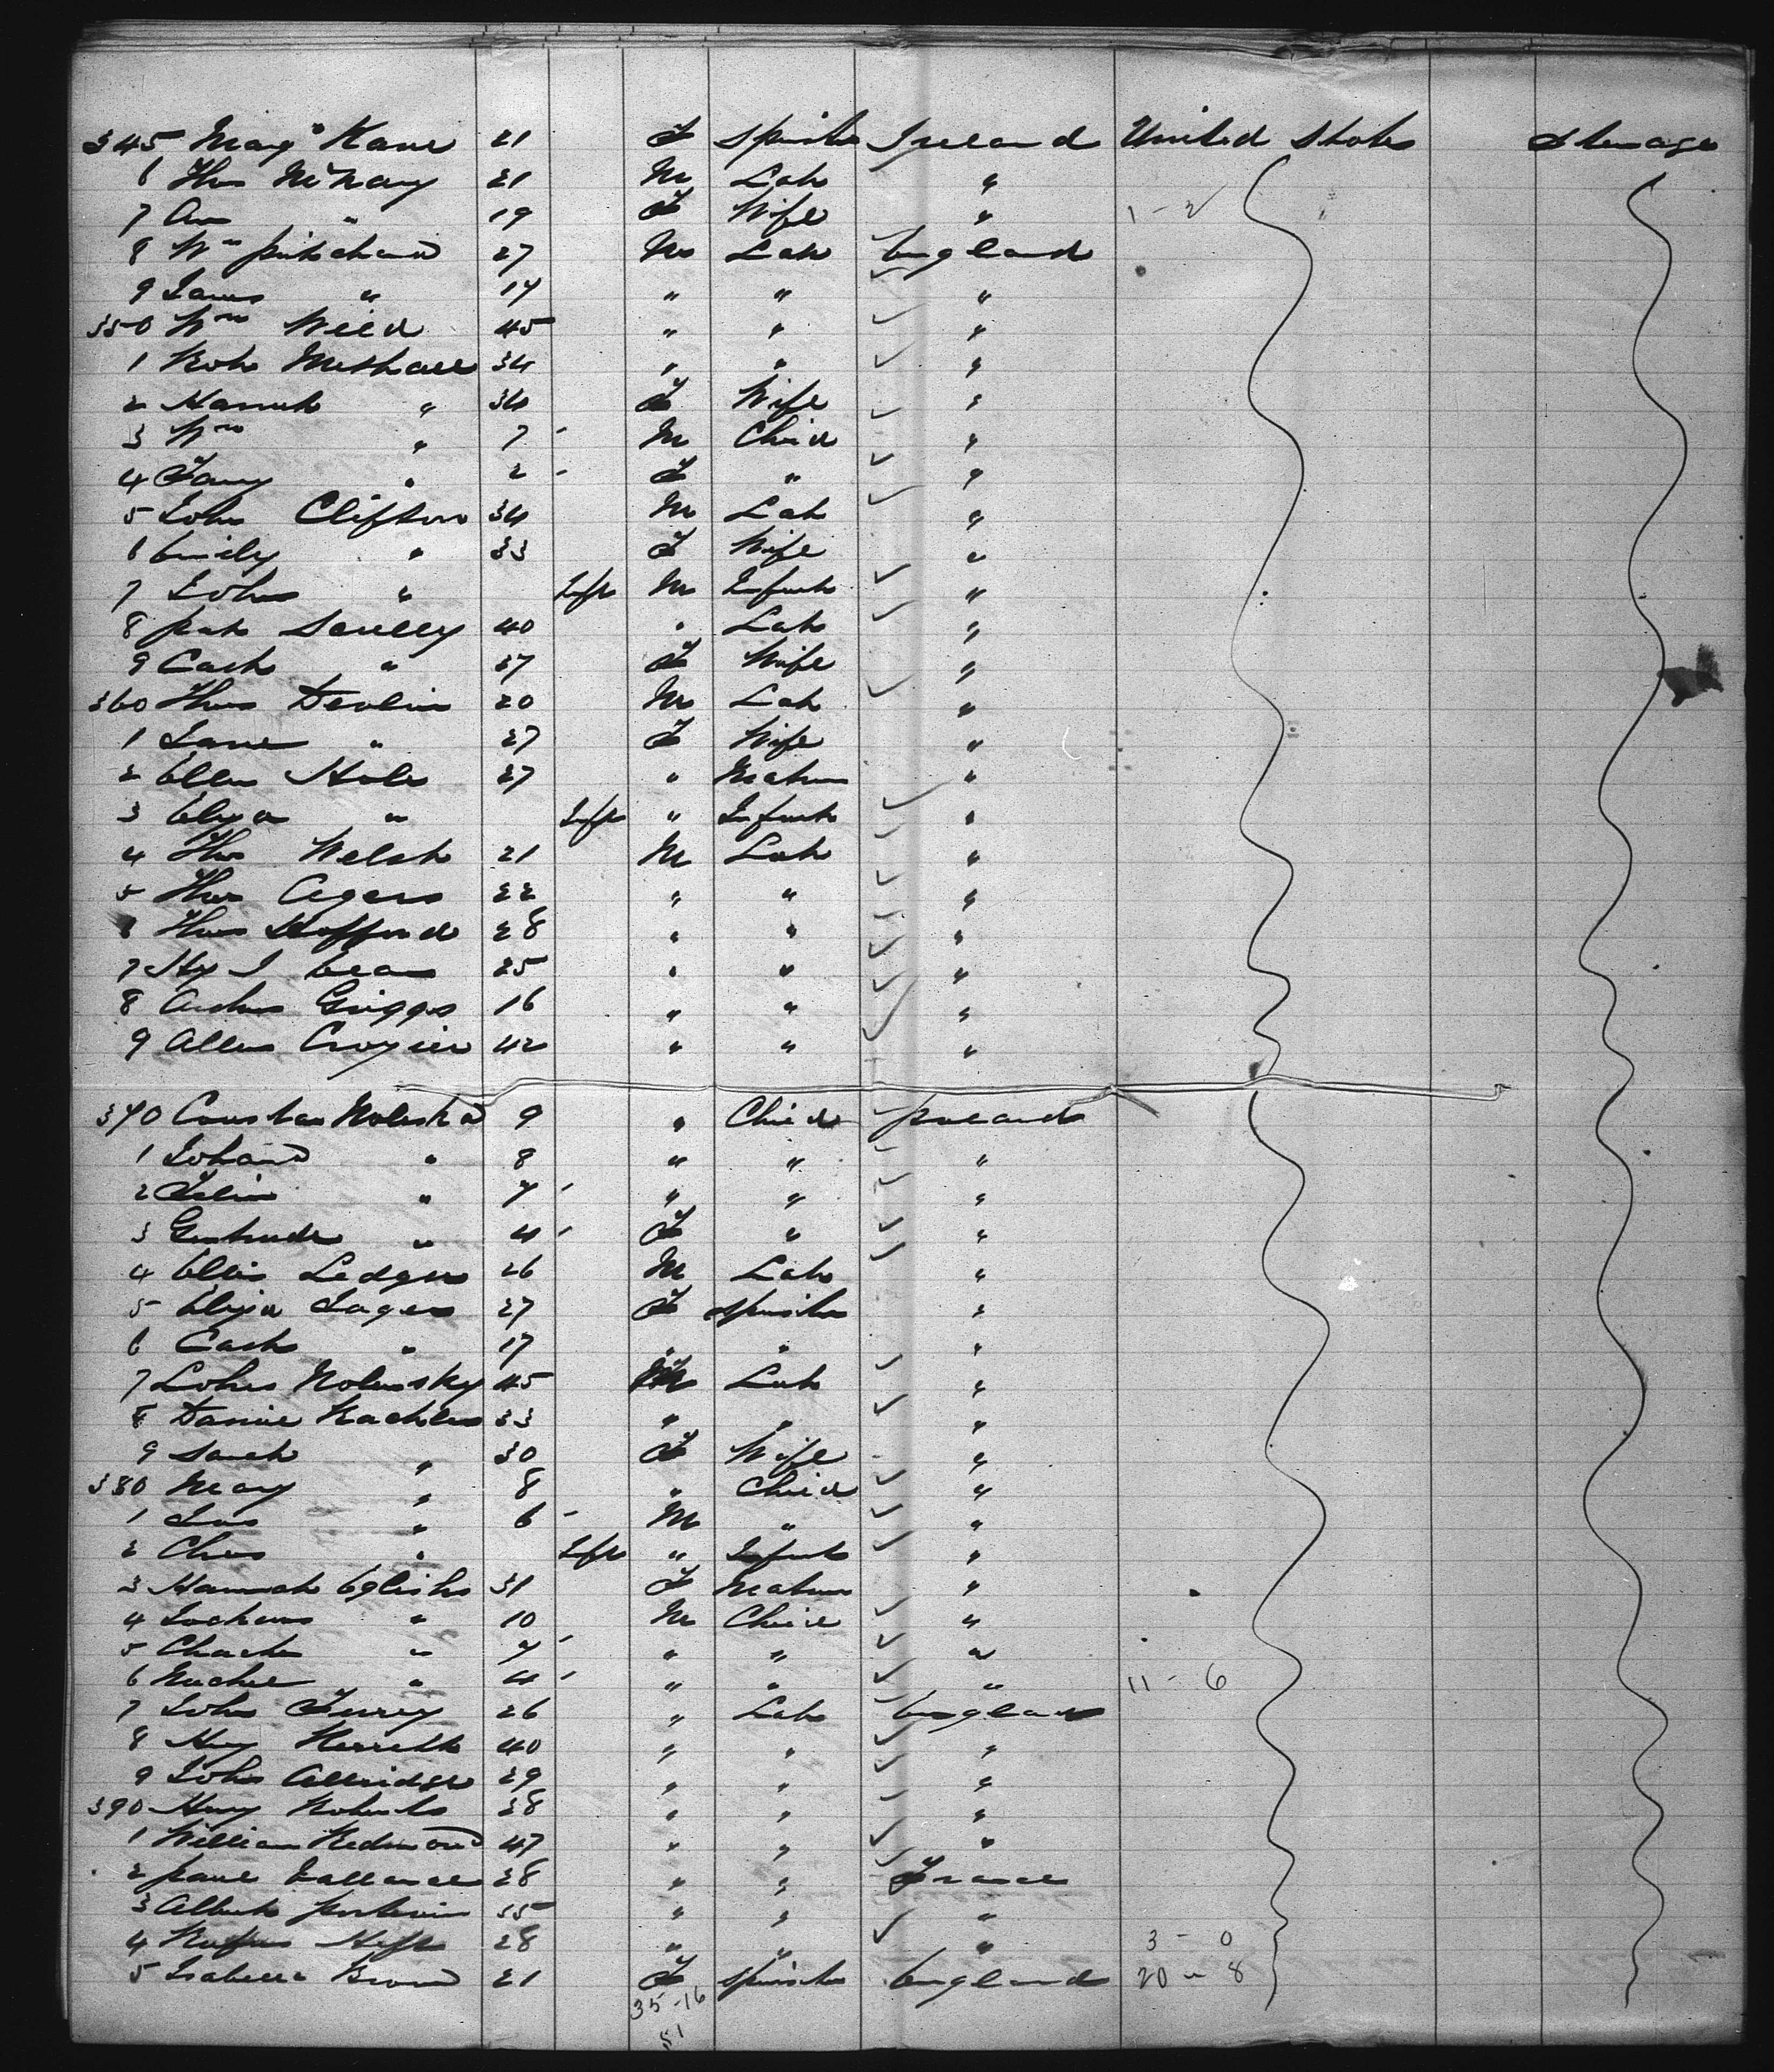 345 Mary Kane 21 F Spinster Ireland United States Steerage
6 Thos McNany 21 M Lab "
7 Ann " 19 F Wife " 1 - 2
8 Wm Pritchard 27 M Lab England
9 James " 17 " " "
350 Wm Weid 45 " " "
1 Rob 34 " " "
2 Hannah " 34 F Wife "
3 Wm " 7 - M Child "
4 Fany " 2 - F " "
5 John Clifton 34 M Lab "
6 Emily " 33 F Wife "
7 John " Inft M Infant "
8 Pat Scully 40 " Lab "
9 Cath " 37 F Wife "
360 Thos Devlin 20 M Lab "
1 Jane " 27 F Wife "
2 Ellen Hole 27 " Matron "
3 Eliza " Inft " Infant "
4 Thos Welsh 21 M Lab "
5 Thos Agers 22 " " "
6 Thos Stafford 28 " " "
7 Hy J 25 " " "
8 Arthur Griggs 16 " " "
9 Allen Crozier 42 " " "
370 Constan 9 " Child Poland
1 Johann " 8 " " "
2 Felix " 7 - " " "
3 Gertrude " 4 - F " "
4 Ellis Ledger 26 M Lab "
5 Eliza Jager 27 F Spinster "
6 Cath " 17 " " "
7 John Nolensky 45 M Lab "
8 Daniel 33 " " "
9 Sarah " 30 F Wife "
380 Mary " 8 " Child "
1 Jas " 6 - M " "
2 Chas " Inft " Infant "
3 Hannah 31 F Matron "
4 " 10 M Child "
5 " 7 - " " "
6 " 4 - " " " 11 - 6
7 John Furry 26 " Lab England
8 Hny 40 " " "
9 John Allridge 29 " " "
390 Hny Roberts 28 " " "
1 William Redmond 47 " " "
2 Paul 28 " " France
3 Albert 35 " " "
4 28 " " " 3 - 0
5 Isabella Brown 21 F Spinster England 20 - 8
35 - 16
51